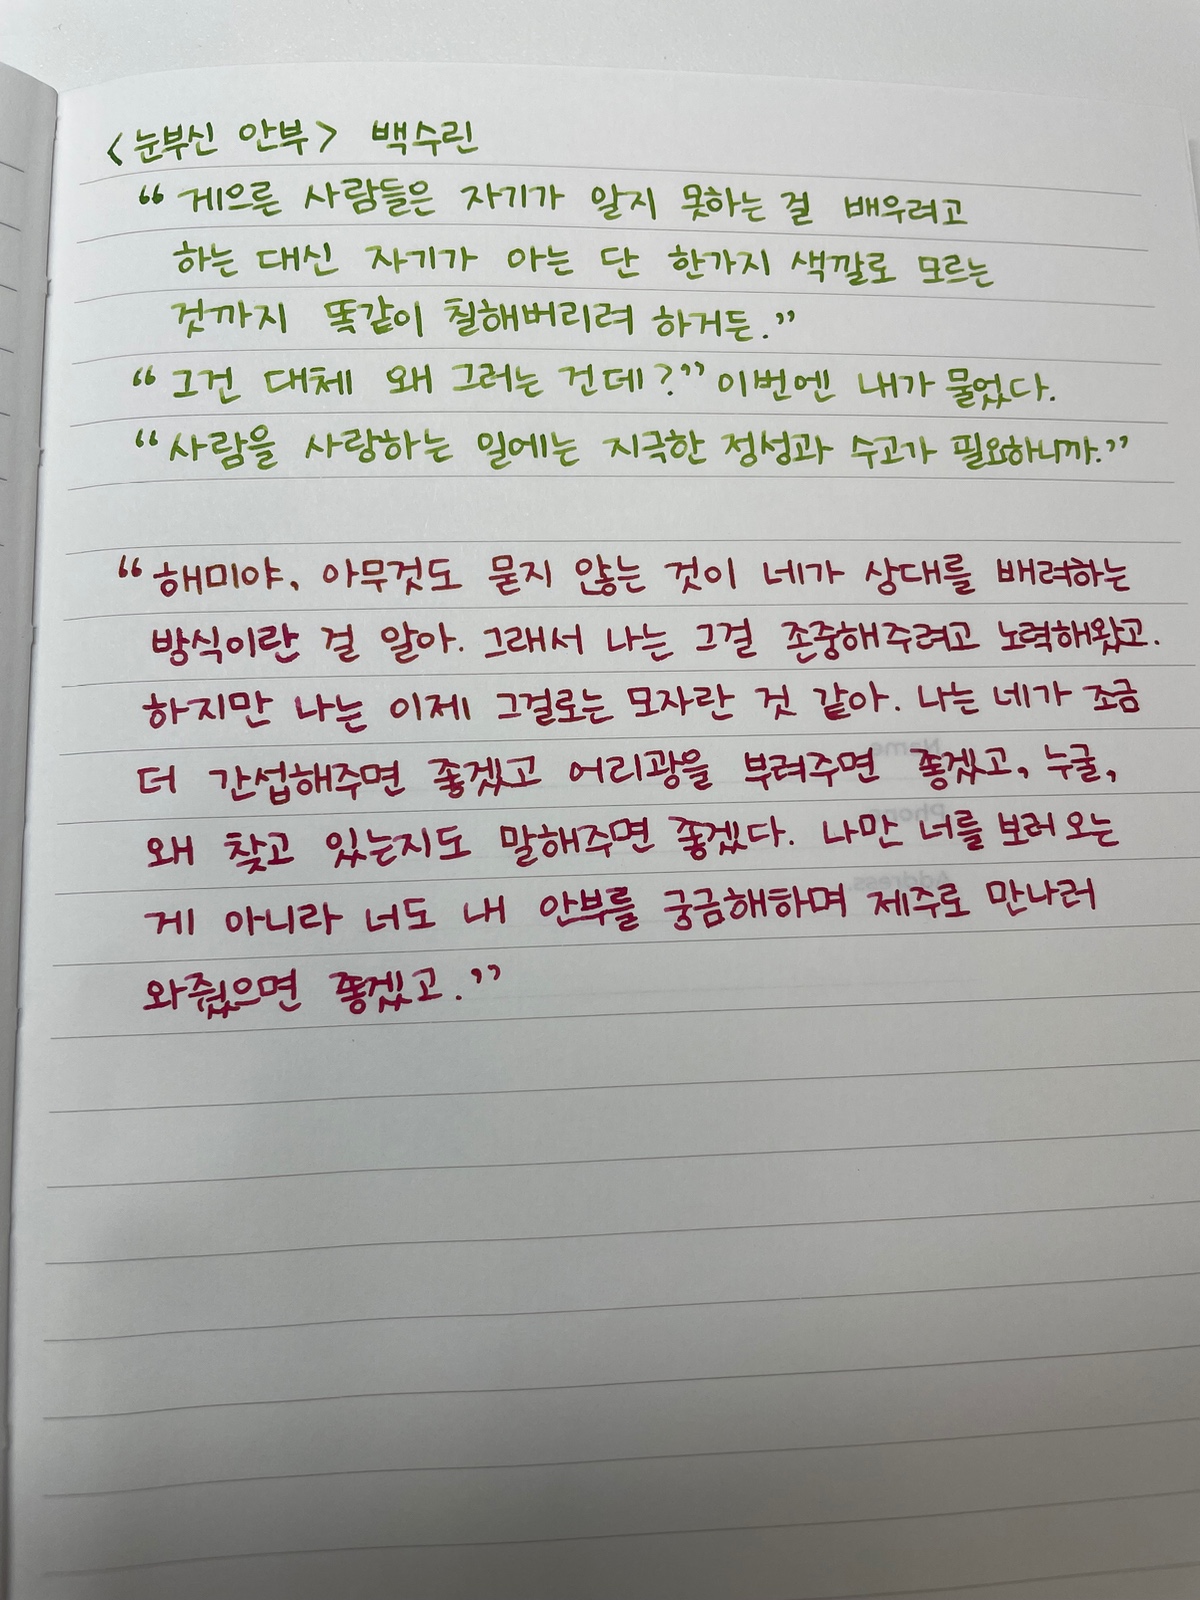 <눈부신 안부> 백수린
“게으른 사람들은 자기가 알지 못하는 걸 배우려고
하는 대신 자기가 아는 단 한가지 색깔로 모르는
것까지 똑같이 칠해버리려 하거든.”
“그건 대체 왜 그러는 건데?” 이번엔 내가 물었다.
“사람을 사랑하는 일에는 지극한 정성과 수고가 필요하니까.”
“해미야, 아무것도 묻지 않는 것이 네가 상대를 배려하는
방식이란 걸 알아. 그래서 나는 그걸 존중해주려고 노력해왔고.
하지만 나는 이제 그걸로는 모자란 것 같아. 나는 네가 조금
더 간섭해주면 좋겠고 어리광을 부려주면 좋겠고, 누굴,
왜 찾고 있는지도 말해주면 좋겠다. 나만 너를 보러 오는
게 아니라 너도 내 안부를 궁금해하며 제주로 만나러
와줬으면 좋겠고.”
Name
Phone
Address